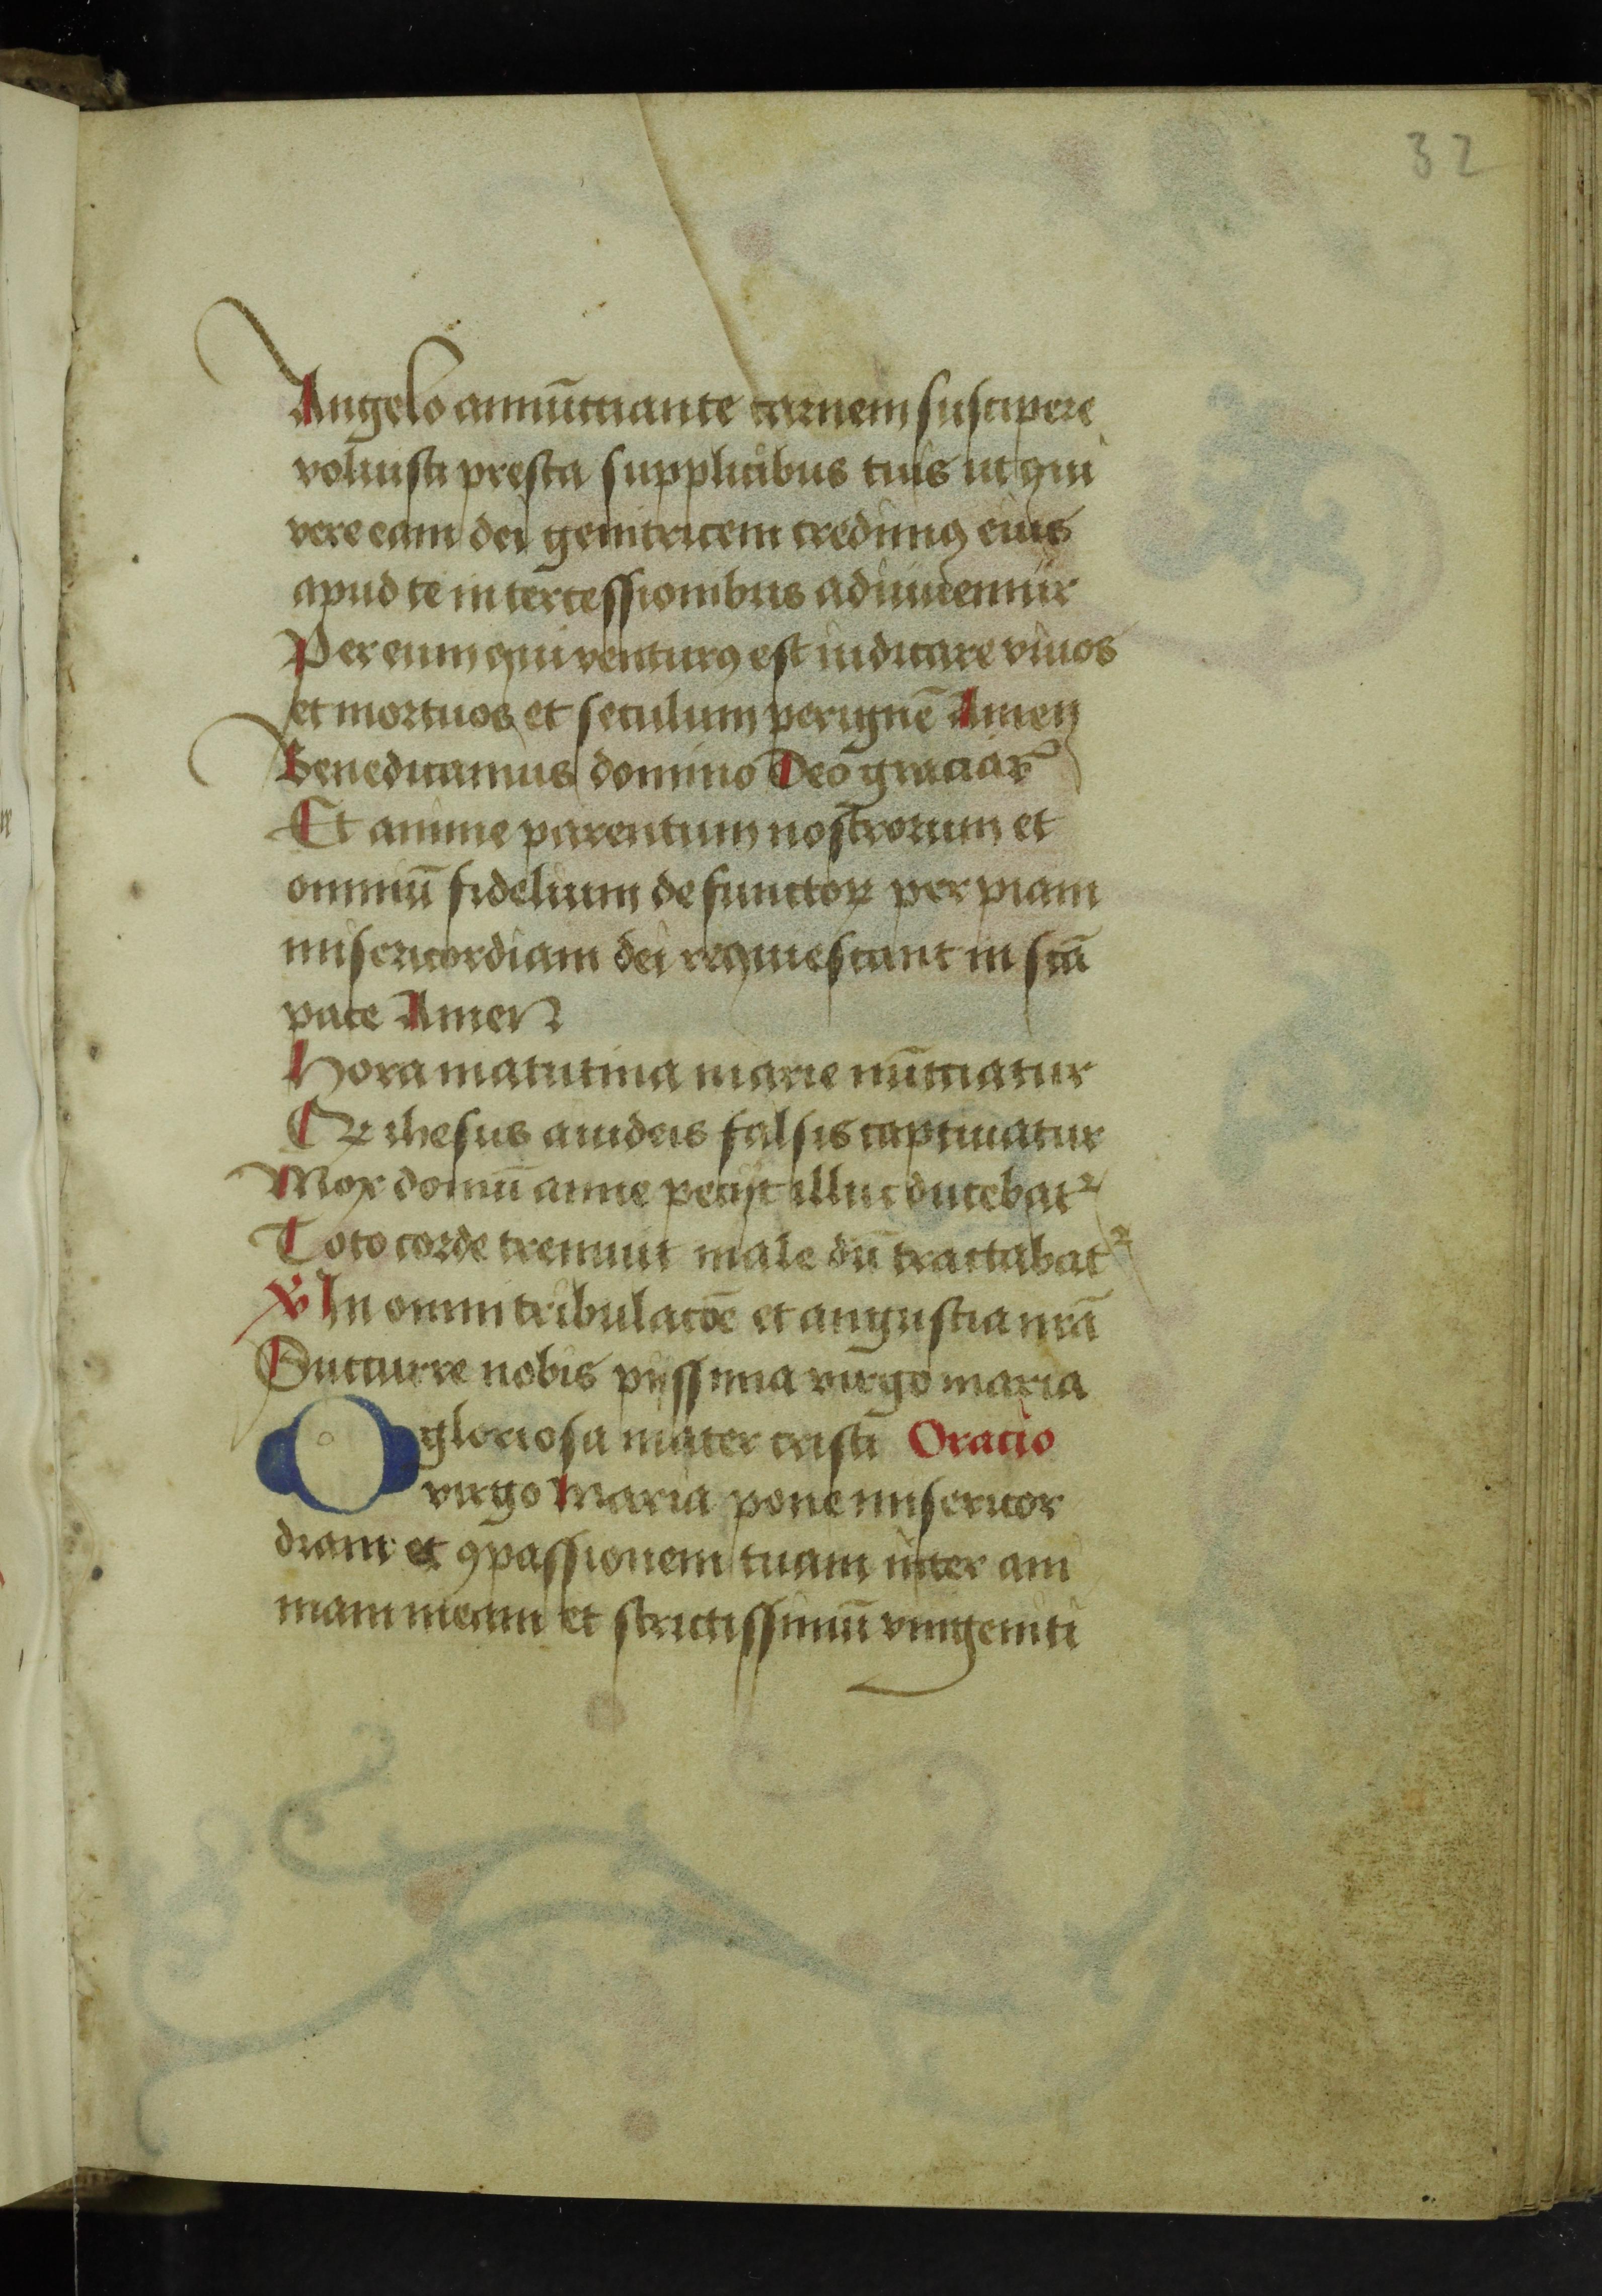 32
Angelo annūcciante carnem suscipere
voluisti presta supplicibus tuis ut qui
vere eam dei genitricem credimꝰ eius
apud te intercessionibus adiuuemur
Per eum qui venturꝰ est iudicare viuos
et mortuos et seculum per ignē Amen
Benedicamus domino Deo graciar̄
Et anime parentum nostrorum et
omniū fidelium defunctoꝝ per piam
misericordiam dei requiescant in scā
pace Amen
Hora matutina marie nūcciatur
Qꝫ ihesus a iudeis falsis captiuatur
Mox domū anne peciit illuc ducebat᷑
Toto corde tremuit male dū tractabat᷑
℣ In omni tribulacōe et angustia nrā
Succurre nobis piissima virgo maria
O gloriosa mater cristi Oracio
virgo Maria pone misericor
diam et ꝯpassionem tuam inter ani
mam meam et strictissimū vnigeniti